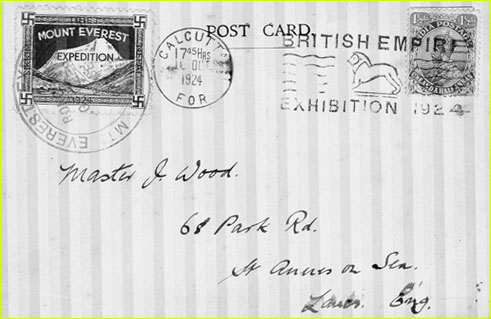 THE
MOUNT EVEREST
EXPEDITION
MT EVEREST
POST CARD.
CALCUTTA
17 45 HRS
OCT
1924
FOR
BRITISH EMPIRE
EXHIBITION 1924
Master J. Wood.
68 Park Rd.
St Annes on Sea.
Lancs. Eng.